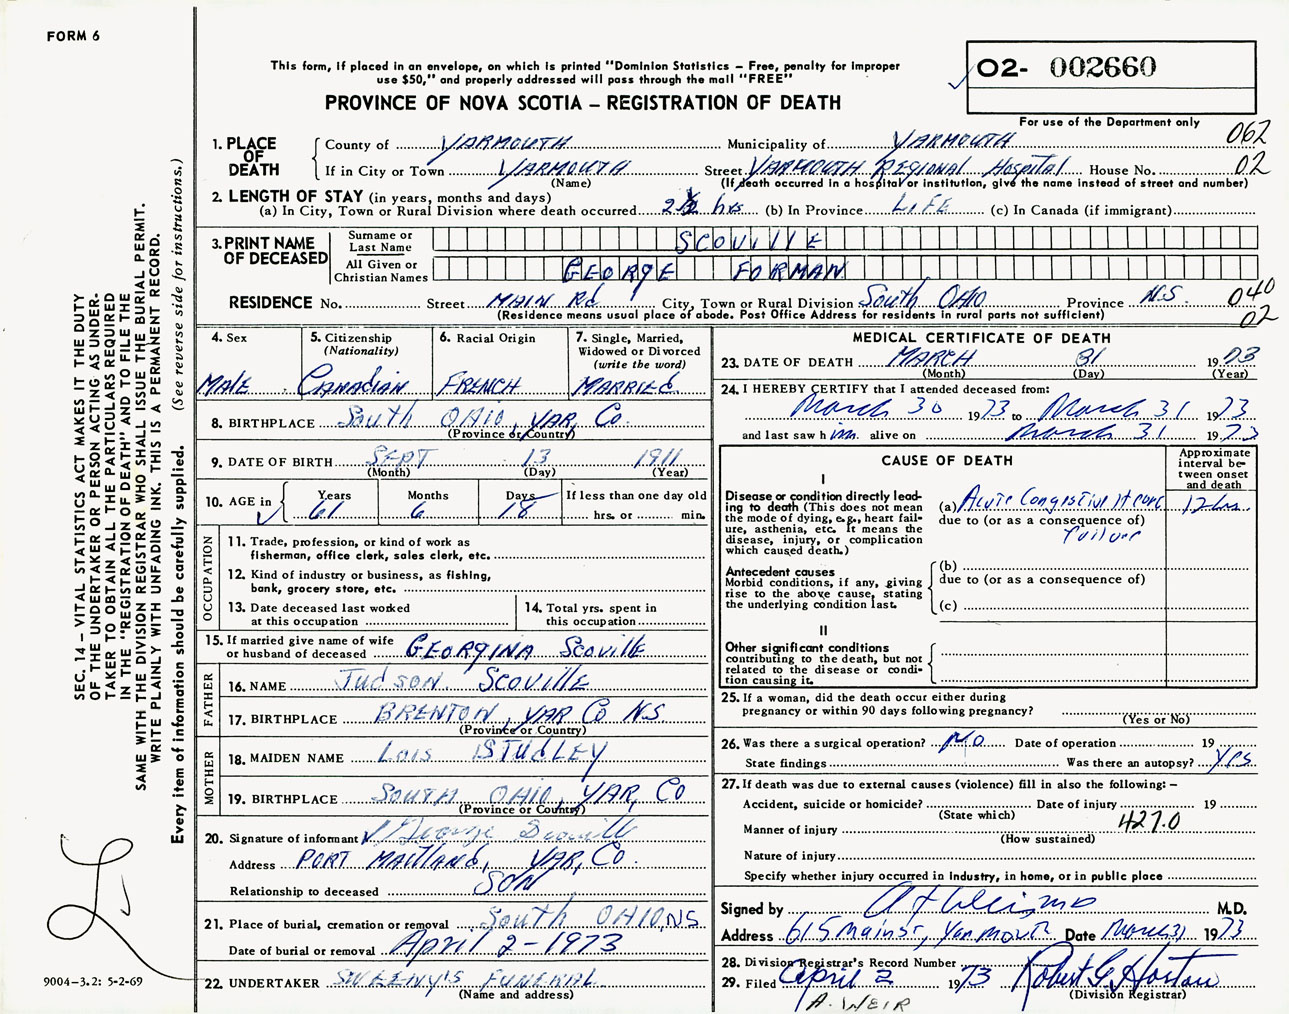 FORM 6
This form, if placed in an envelope, on which is printed "Dominion Statistics – Free, penalty for improper
use $50," and properly addressed will pass through the mail "FREE"
PROVINCE OF NOVA SCOTIA – REGISTRATION OF DEATH
O2- 002660
For use of the Department only
062
02
1. PLACE OF DEATH
County of YARMOUTH Municipality of YARMOUTH
If in City or Town YARMOUTH Street YARMOUTH REGIONAL HOSPITAL House No.
(Name) (If death occurred in a hospital or institution, give the name instead of street and number)
2. LENGTH OF STAY (in years, months and days)
(a) In City, Town or Rural Division where death occurred hrs (b) In Province LIFE (c) In Canada (if immigrant)
3. PRINT NAME OF DECEASED
Surname or Last Name SCOVILLE
All Given or Christian Names GEORGE FORMAN
RESIDENCE No. Street MAIN Rd City, Town or Rural Division South OHIO Province N.S.
(Residence means usual place of abode. Post Office Address for residents in rural parts not sufficient)
040
02
4. Sex MALE
5. Citizenship (Nationality) CANADIAN
6. Racial Origin FRENCH
7. Single, Married, Widowed or Divorced (write the word) MARRIED
8. BIRTHPLACE South OHIO, YAR, Co.
(Province or Country)
9. DATE OF BIRTH SEPT 13 1911
(Month) (Day) (Year)
10. AGE in Years 61 Months 6 Days 18 If less than one day old
hrs. or min.
OCCUPATION
11. Trade, profession, or kind of work as
fisherman, office clerk, sales clerk, etc.
12. Kind of industry or business, as fishing,
bank, grocery store, etc.
13. Date deceased last worked
at this occupation
14. Total yrs. spent in
this occupation
15. If married give name of wife
or husband of deceased GEORGINA Scoville
FATHER
16. NAME JUDSON SCOVILLE
17. BIRTHPLACE BRENTON, YAR Co N.S
(Province or Country)
MOTHER
18. MAIDEN NAME LOIS STUDLEY
19. BIRTHPLACE SOUTH OHIO, YAR, CO
(Province or Country)
20. Signature of informant George Scoville
Address PORT MAITLAND, YAR, CO.
Relationship to deceased SON
21. Place of burial, cremation or removal South OHIO, NS
Date of burial or removal April 2 - 1973
22. UNDERTAKER SWEENY'S FUNERAL
(Name and address)
MEDICAL CERTIFICATE OF DEATH
23. DATE OF DEATH MARCH 31 1973
(Month) (Day) (Year)
24. I HEREBY CERTIFY that I attended deceased from:
March 30 1973 to March 31 1973
and last saw him alive on March 31 1973
CAUSE OF DEATH
Approximate interval between onset and death
I
Disease or condition directly leading to death (This does not mean the mode of dying, e.g., heart failure, asthenia, etc. It means the disease, injury, or complication which caused death.)
(a) Acute Congestive Heart 12 hrs.
due to (or as a consequence of)
Failure
Antecedent causes
Morbid conditions, if any, giving rise to the above cause, stating the underlying condition last.
(b)
due to (or as a consequence of)
(c)
II
Other significant conditions
contributing to the death, but not related to the disease or condition causing it.
25. If a woman, did the death occur either during
pregnancy or within 90 days following pregnancy?
(Yes or No)
26. Was there a surgical operation? NO Date of operation 19
State findings Was there an autopsy? Yes
27. If death was due to external causes (violence) fill in also the following: –
Accident, suicide or homicide? Date of injury 19
(State which)
427.0
Manner of injury
(How sustained)
Nature of injury
Specify whether injury occurred in industry, in home, or in public place
Signed by M.D.
Address 615 Main St, Yarmouth Date March 31 1973
28. Division Registrar's Record Number
29. Filed April 2 1973 Robert G Horton
(Division Registrar)
A. WEIR
SEC. 14 – VITAL STATISTICS ACT MAKES IT THE DUTY
OF THE UNDERTAKER OR PERSON ACTING AS UNDER-
TAKER TO OBTAIN ALL THE PARTICULARS REQUIRED
IN THE "REGISTRATION OF DEATH" AND TO FILE THE
SAME WITH THE DIVISION REGISTRAR WHO SHALL ISSUE THE BURIAL PERMIT.
WRITE PLAINLY WITH UNFADING INK. THIS IS A PERMANENT RECORD.
Every item of information should be carefully supplied. (See reverse side for instructions.)
9004-3.2: 5-2-69